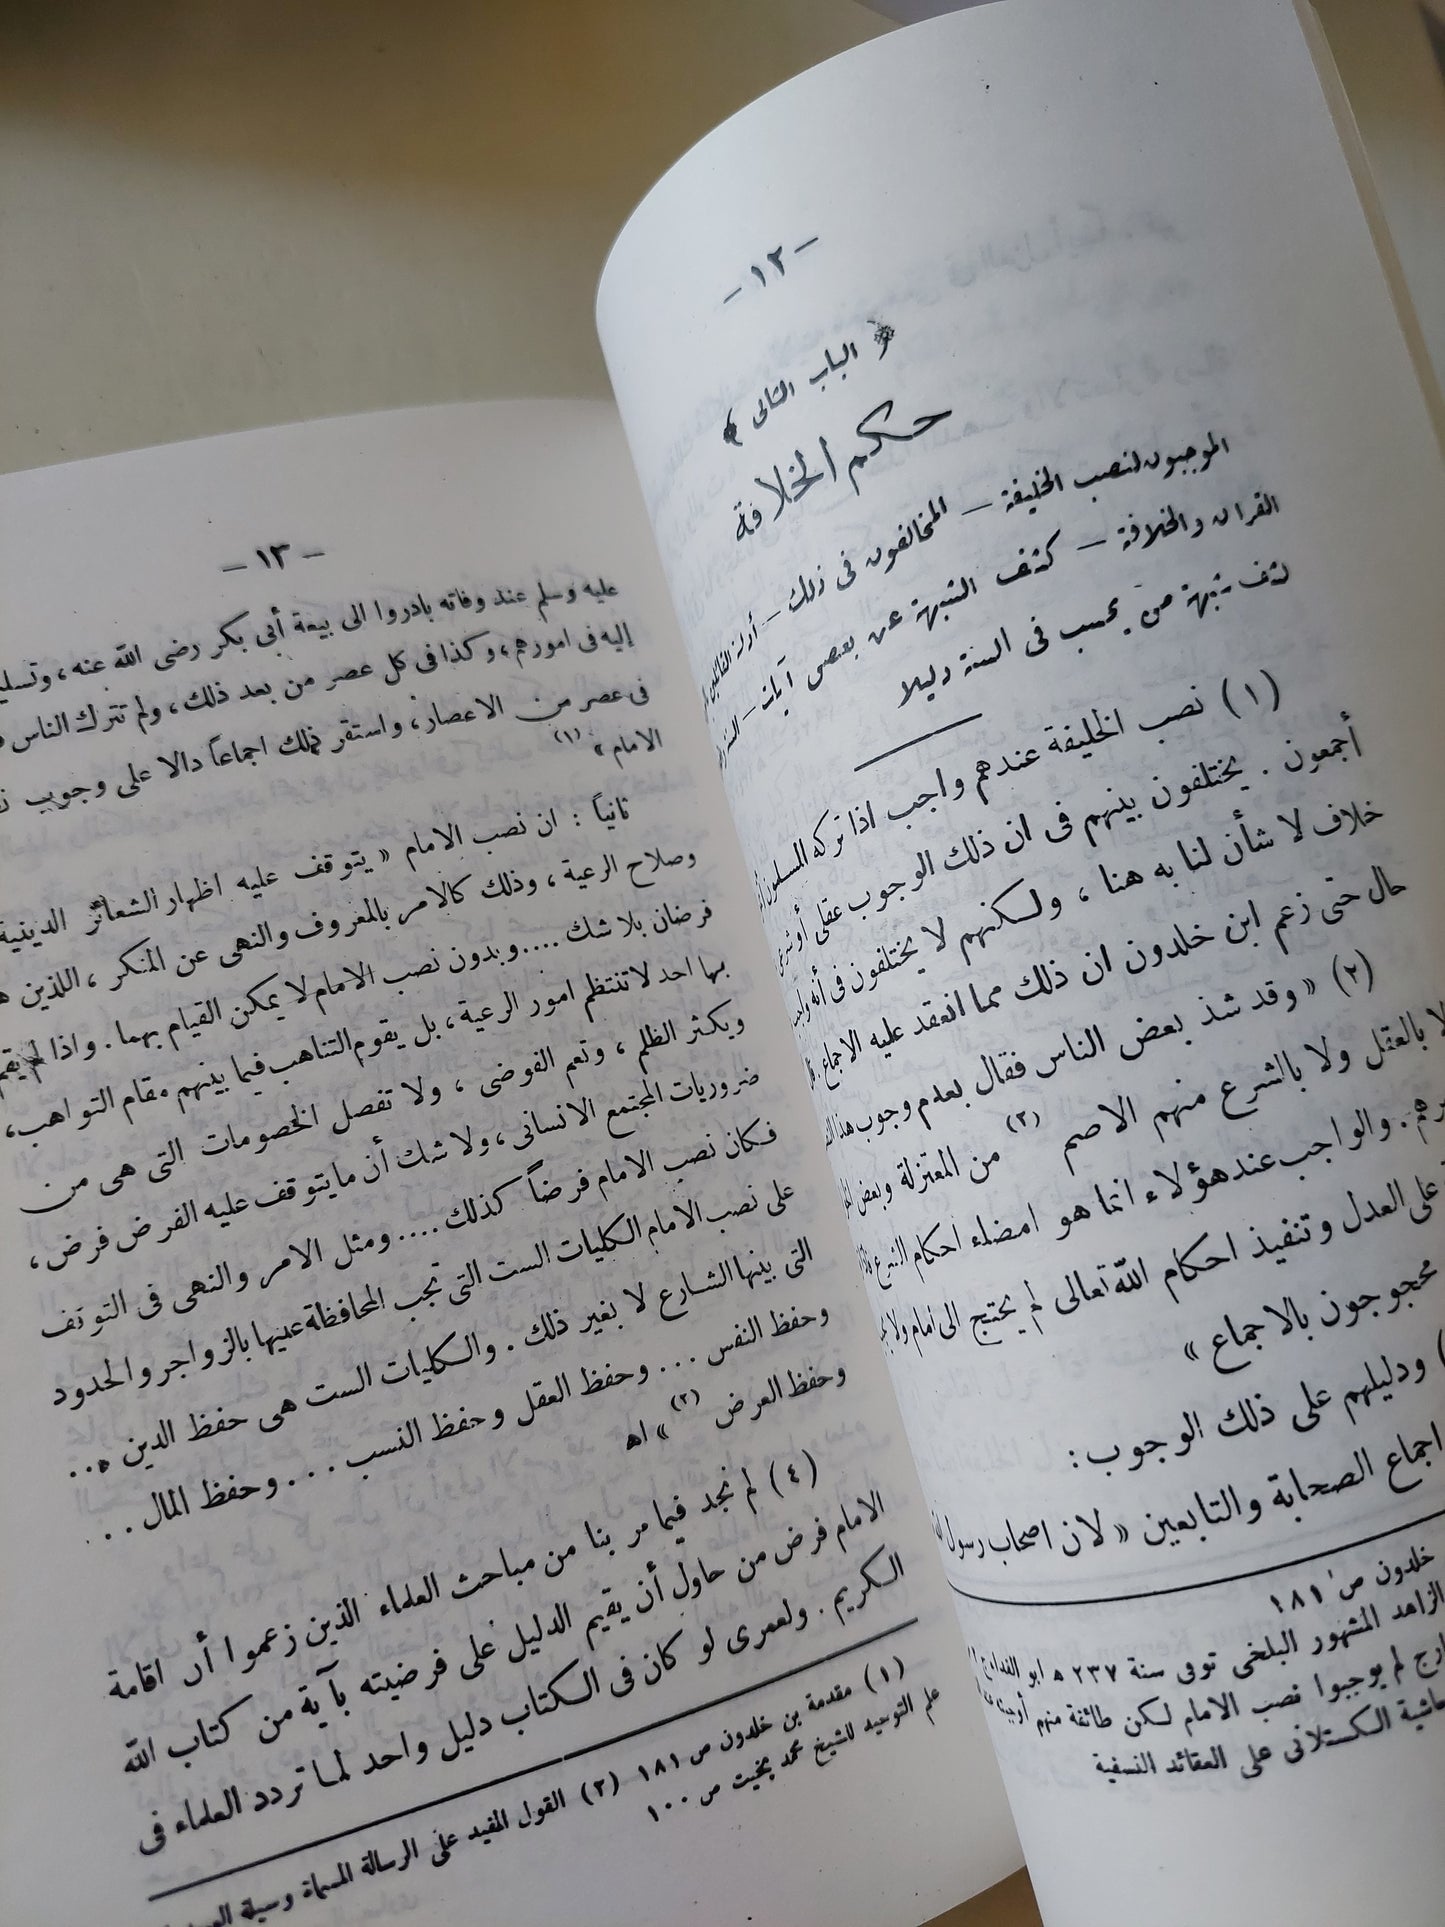 — ١٢ —
﴿ الباب الثانى ﴾
حكم الخلافة
الموجبون لنصب الخليفة — المخالفون فى ذلك — أدلة القائلين
القرآن والخلافة — كشف الشبهة عن بعض آيات — السنة
كشف شبهة من يحسب فى السنة دليلا
(١) نصب الخليفة عندهم واجب اذا تركه المسلمون
أجمعون . يختلفون بينهم فى ان ذلك الوجوب عقلى أو شرعى
خلاف لا شأن لنا به هنا ، ولكنهم لا يختلفون فى أنه واجب
حال حتى زعم ابن خلدون ان ذلك مما انعقد عليه الاجماع .
(٢) « وقد شذ بعض الناس فقال بعدم وجوب هذا
لا بالعقل ولا بالشرع منهم الاصم (٢) من المعتزلة وبعض
والواجب عند هؤلاء انما هو امضاء احكام الشرع
على العدل وتنفيذ احكام الله تعالى لم يحتج الى امام ولا
محجوجون بالاجماع »
) ودليلهم على ذلك الوجوب :
اجماع الصحابة والتابعين « لان اصحاب رسول
خلدون ص ١٨١
الزاهد المشهور البلخى توفى سنة ٢٣٧ ه ابو الفداء ج
لم يوجبوا نصب الامام لكن طائفة منهم
حاشية الكستلانى على العقائد النسفية
— ١٣ —
عليه وسلم عند وفاته بادروا الى بيعة أبى بكر رضى الله عنه ، وتسليم
إليه فى امورهم ، وكذا فى كل عصر من بعد ذلك ، ولم تترك الناس
فى عصر من الاعصار ، واستقر ذلك اجماعاً دالا على وجوب
الامام » (١)
ثانياً : ان نصب الامام « يتوقف عليه اظهار الشعائر الدينية
وصلاح الرعية ، وذلك كالامر بالمعروف والنهى عن المنكر ، اللذين
فرضان بلا شك .... وبدون نصب الامام لا يمكن القيام بهما . واذا لم يقم
بها احد لا تنتظم امور الرعية ، بل يقوم التناهب فيما بينهم مقام التواهب ،
ويكثر الظلم ، وتعم الفوضى ، ولا تفصل الخصومات التى هى من
ضروريات المجتمع الانسانى ، ولا شك أن ما يتوقف عليه الفرض فرض ،
فكان نصب الامام فرضاً كذلك .... ومثل الامر والنهى فى التوقف
على نصب الامام الكليات الست التى تجب المحافظة عليها بالزواجر والحدود
التى بينها الشارع لا بغير ذلك . والكليات الست هى حفظ الدين ...
وحفظ النفس ... وحفظ العقل وحفظ النسب ... وحفظ المال ..
وحفظ العرض (٢) » اه
(٤) لم نجد فيما مر بنا من مباحث العلماء الذين زعموا أن اقامة
الامام فرض من حاول أن يقيم الدليل على فرضيته بآية من كتاب الله
الكريم . ولعمرى لو كان فى الكتاب دليل واحد لما تردد العلماء فى
(١) مقدمة بن خلدون ص ١٨١ (٢) القول المفيد على الرسالة المسماة وسيلة
علم التوحيد للشيخ محمد بخيت ص ١٠٠